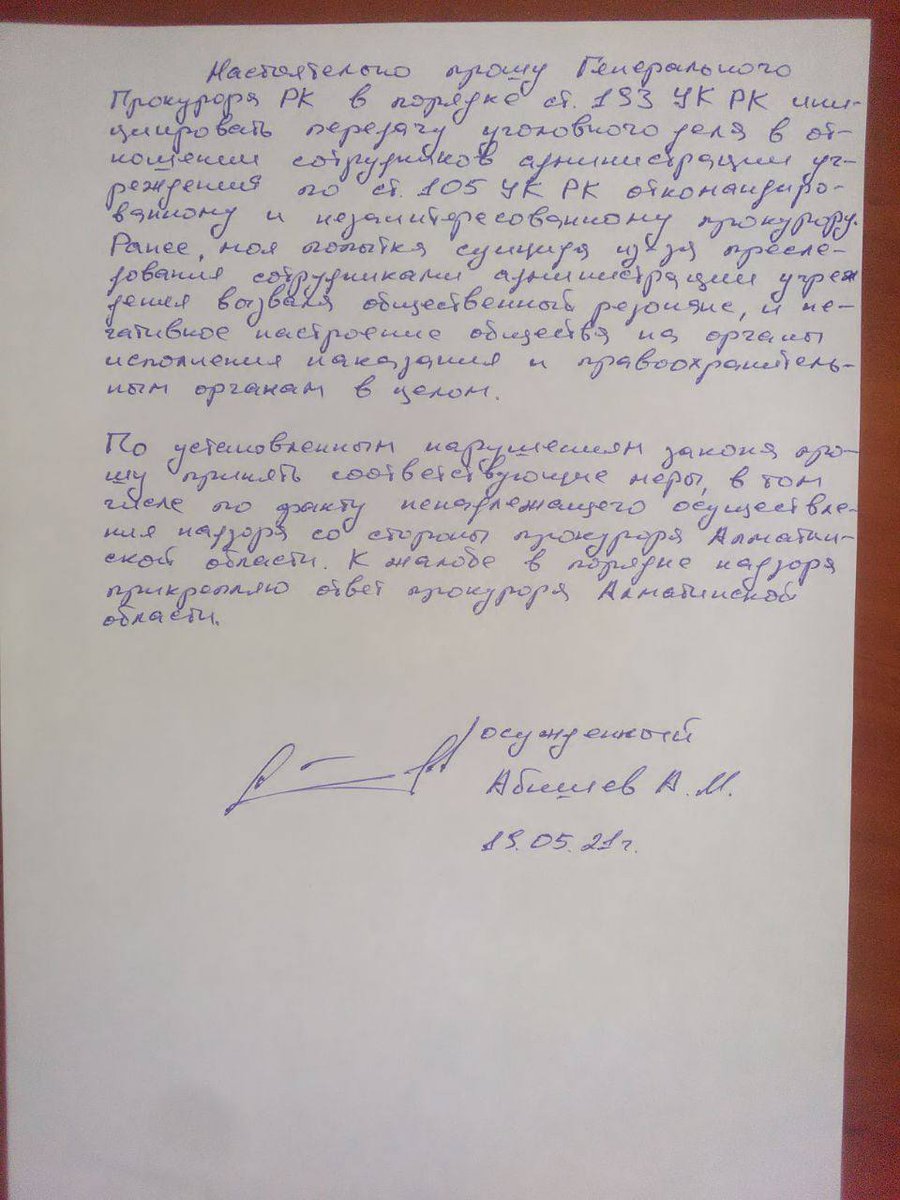 Настоятельно прошу Генерального
Прокурора РК в порядке ст. 193 УК РК ини-
циировать передачу уголовного дела в от-
ношении сотрудников администрации уч-
реждения по ст. 105 УК РК откомандиро-
ванному и незаинтересованному прокурору.
Ранее, моя попытка суицида из-за пресле-
дования сотрудниками администрации учреж
дения вызвала общественный резонанс, и не-
гативное настроение общества на органы
исполнения наказания и правоохранитель-
ным органам в целом.
По установленным нарушениям закона про-
шу принять соответствующие меры, в том
числе по факту ненадлежащего осуществле-
ния надзора со стороны прокурора Алматин-
ской области. К жалобе в порядке надзора
прикрепляю ответ прокурора Алматинской
области.
осужденный
Абишев А. М.
19.05.21г.